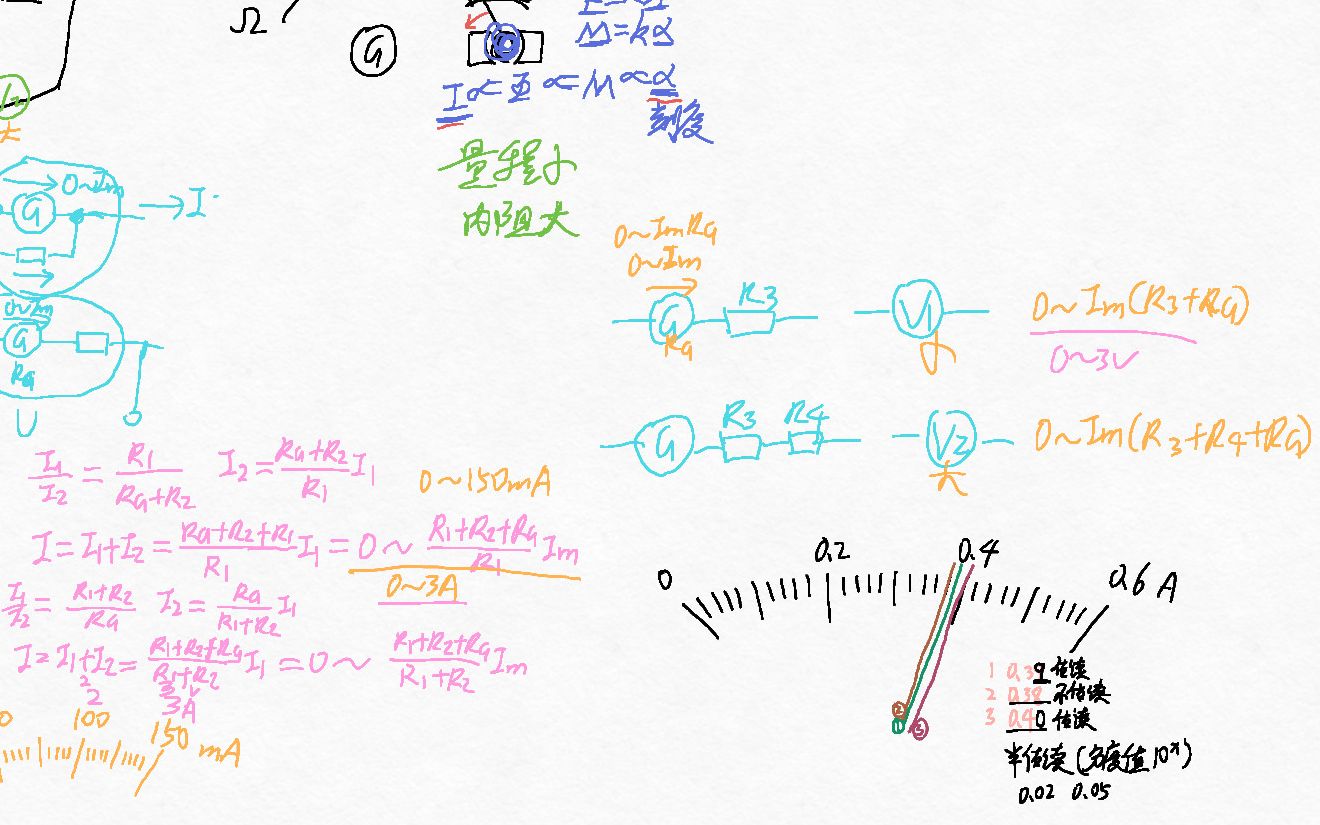 Ω
G
M=kα
I∝Φ∝M∝α
刻度
量程小
内阻大
大
0~Im
G
→I
0~Im
G
RG
U
0~ImRG
0~Im
G
RG
R3
V1
小
0~Im(R3+RG)
0~3V
G
R3
R4
V2
大
0~Im(R3+R4+RG)
I1/I2=R1/(RG+R2) I2=(RG+R2)/R1 I1
0~150mA
I=I1+I2=(RG+R2+R1)/R1 I1=0~(R1+R2+RG)/R1 Im
0~3A
I1/I2=(R1+R2)/RG I2=RG/(R1+R2) I1
I=I1+I2=(R1+R2+RG)/(R1+R2) I1=0~(R1+R2+RG)/(R1+R2) Im
3A
0 100 150 mA
0 0.2 0.4 0.6 A
② ① ③
1 0.39 估读
2 0.38 不估读
3 0.40 估读
半估读(分度值10ˣ)
0.02 0.05